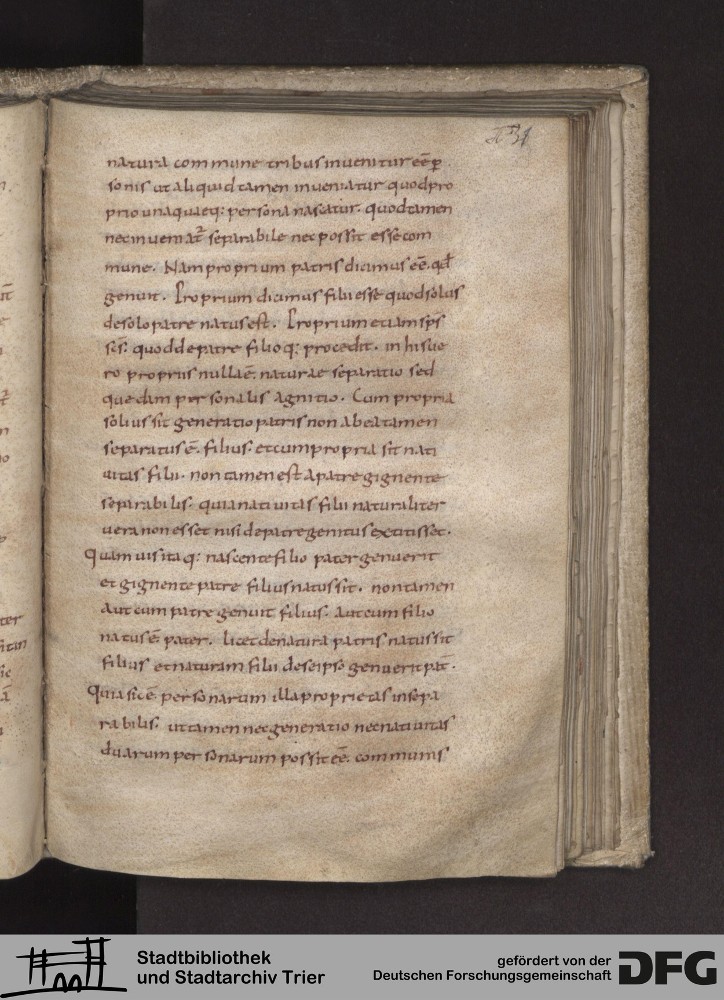 31
natura commune tribus inuenitur eē ꝑ
sonis ut aliquid tamen inueniatur quod pro
prio unaquaeq: persona nascatur. quod tamen
nec inueniat᷑ separabile nec possit esse com
mune. Nam proprium patris dicimus eē. qđ
genuit. Proprium dicimus filii esse quod solus
de solo patre natus est. Proprium etiam sp̄s
sc̄s. quod de patre filioq: procedit. in his ue
ro propriis nulla ē. naturae separatio sed
quedam personalis agnitio. Cum propria
solius sit generatio patris non ab ea tamen
separatus ē. filius. et cum propria sit nati
uitas filii. non tamen est a patre gignente
separabilis. quia natiuitas filii naturaliter
uera non esset nisi de patre genitus extitisset.
Quamuis itaq: nascente filio pater genuerit
et gignente patre filius natus sit. non tamen
aut cum patre genuit filius. aut cum filio
natus ē. pater. licet de natura patris natus sit
filius et naturam filii de se ipso genuerit pat̄.
Quia sic ē personarum illa proprietas insepa
rabilis. ut tamen nec generatio nec natiuitas
duarum personarum possit eē. communis
Stadtbibliothek
und Stadtarchiv Trier
gefördert von der
Deutschen Forschungsgemeinschaft
DFG